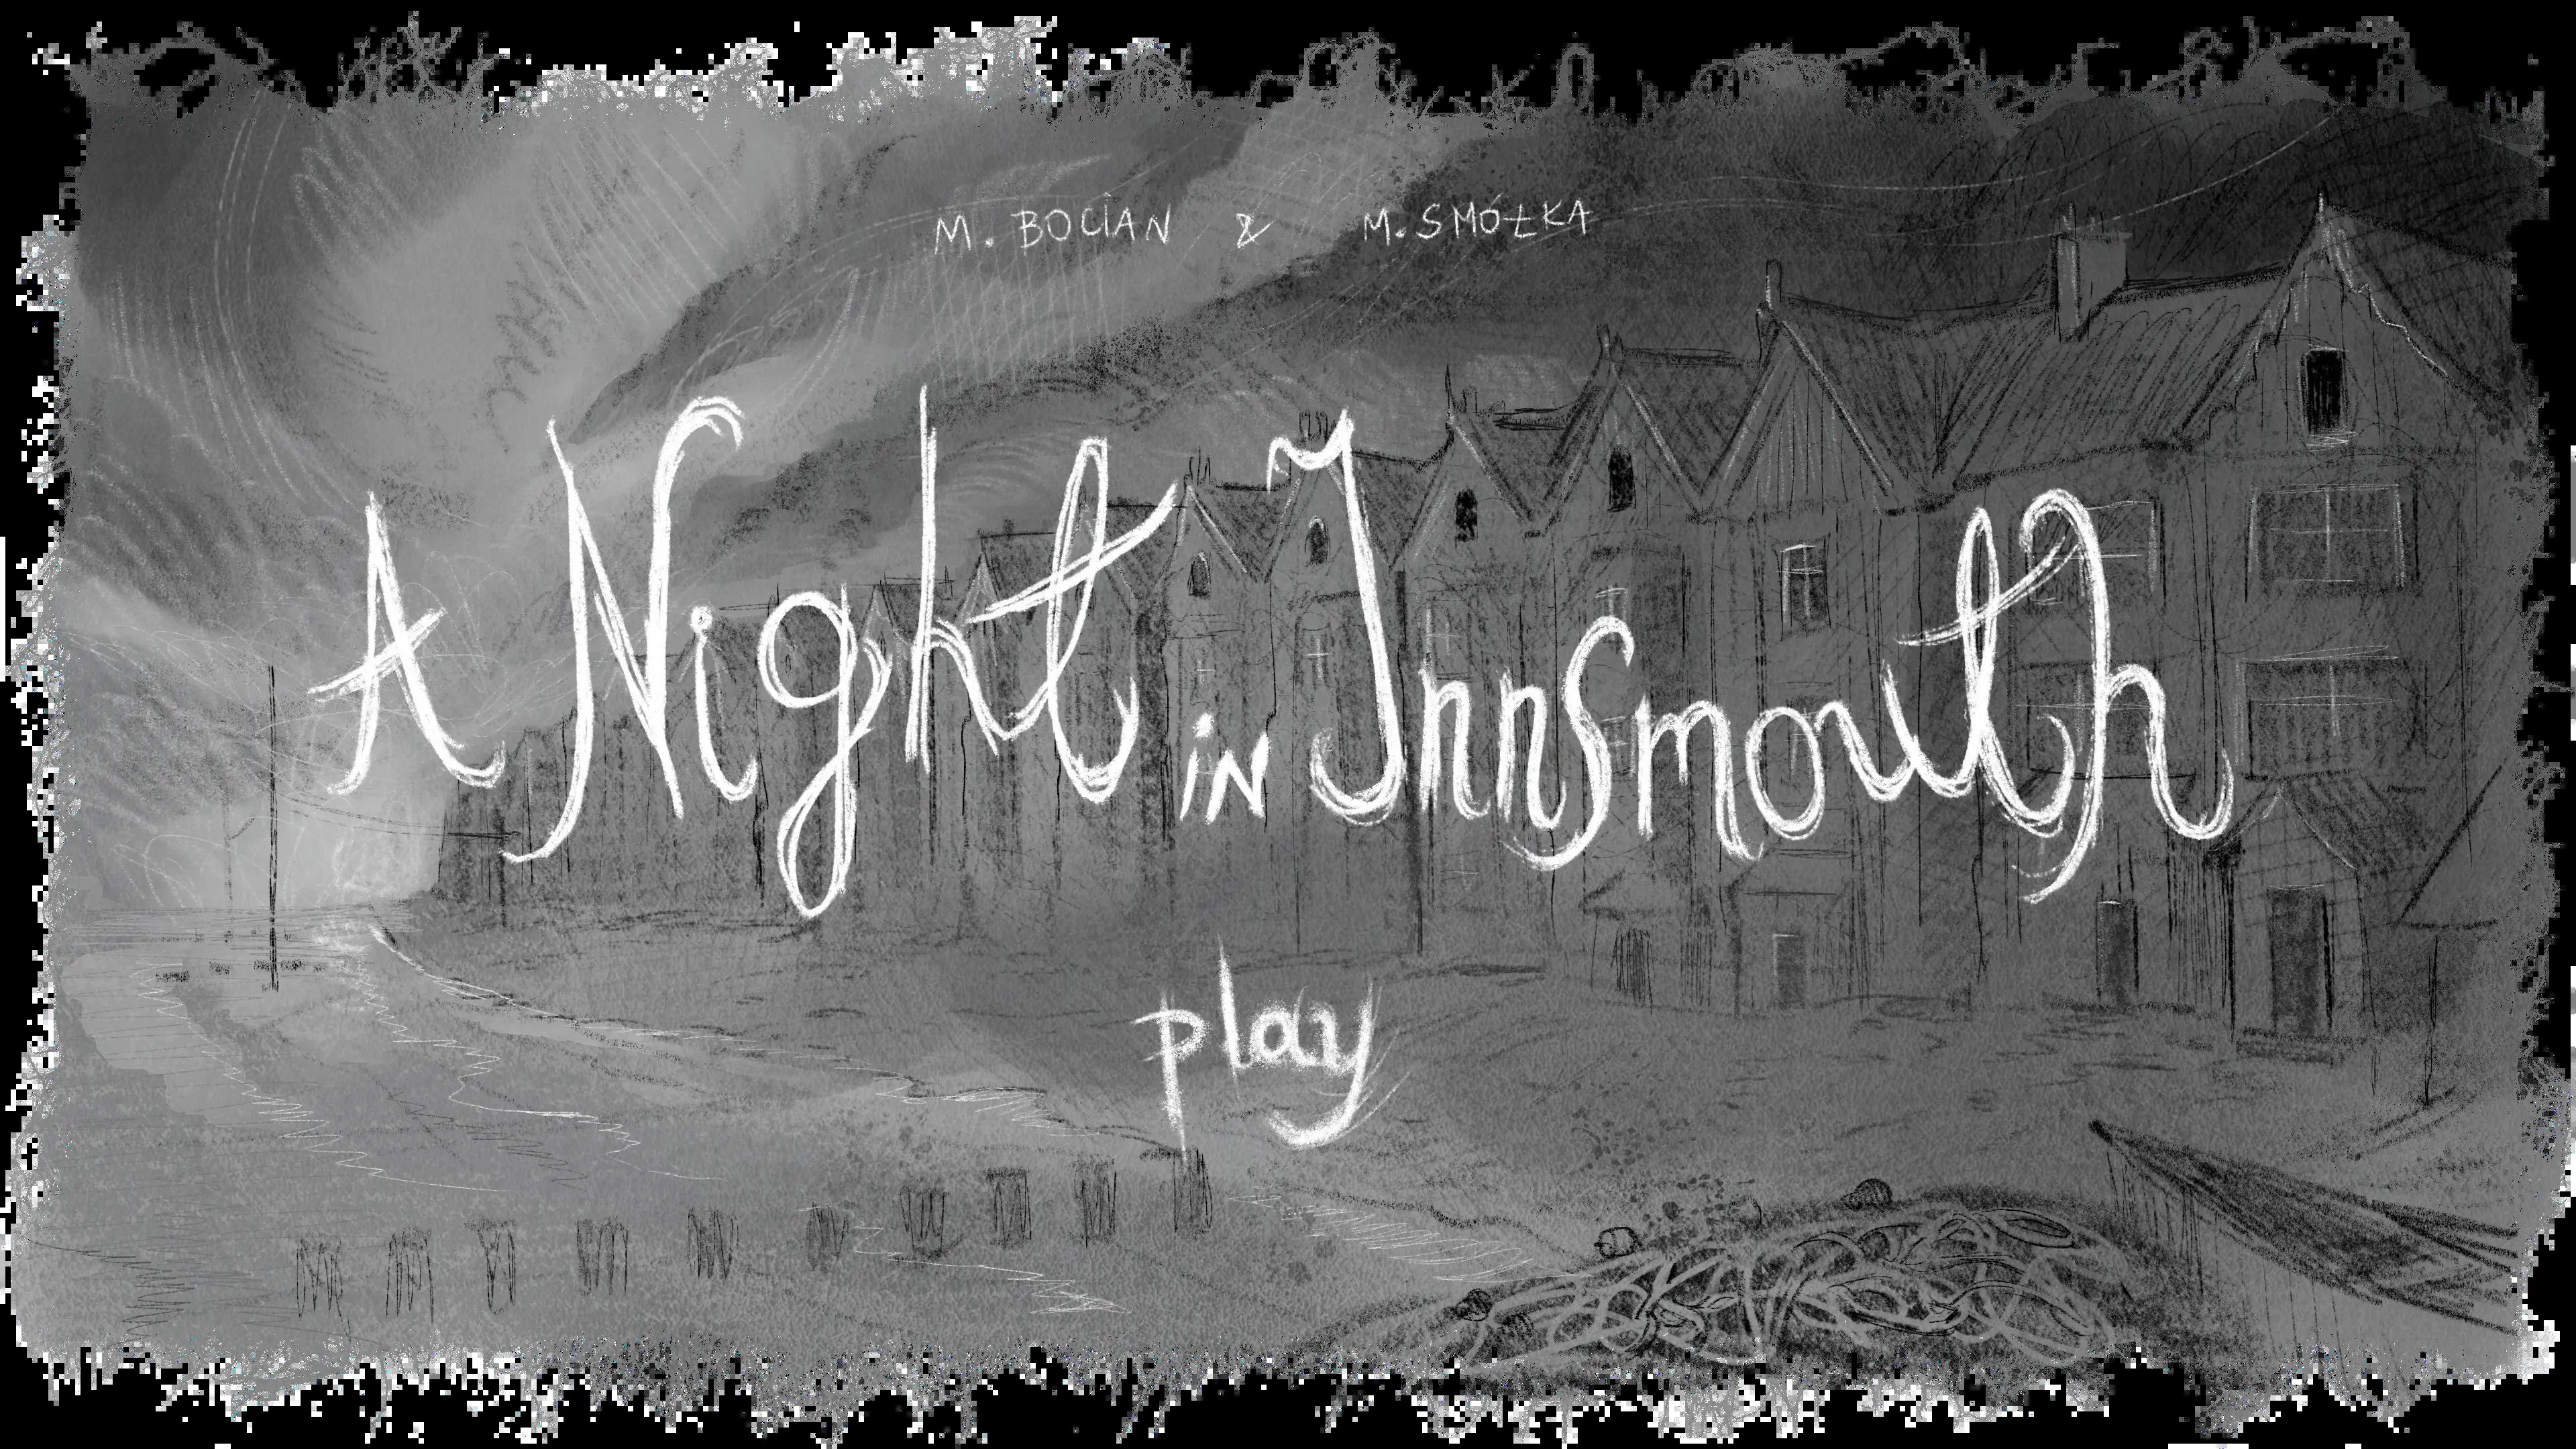 M. BOCIAN & M. SMÓŁKA
A Night in Innsmouth
play